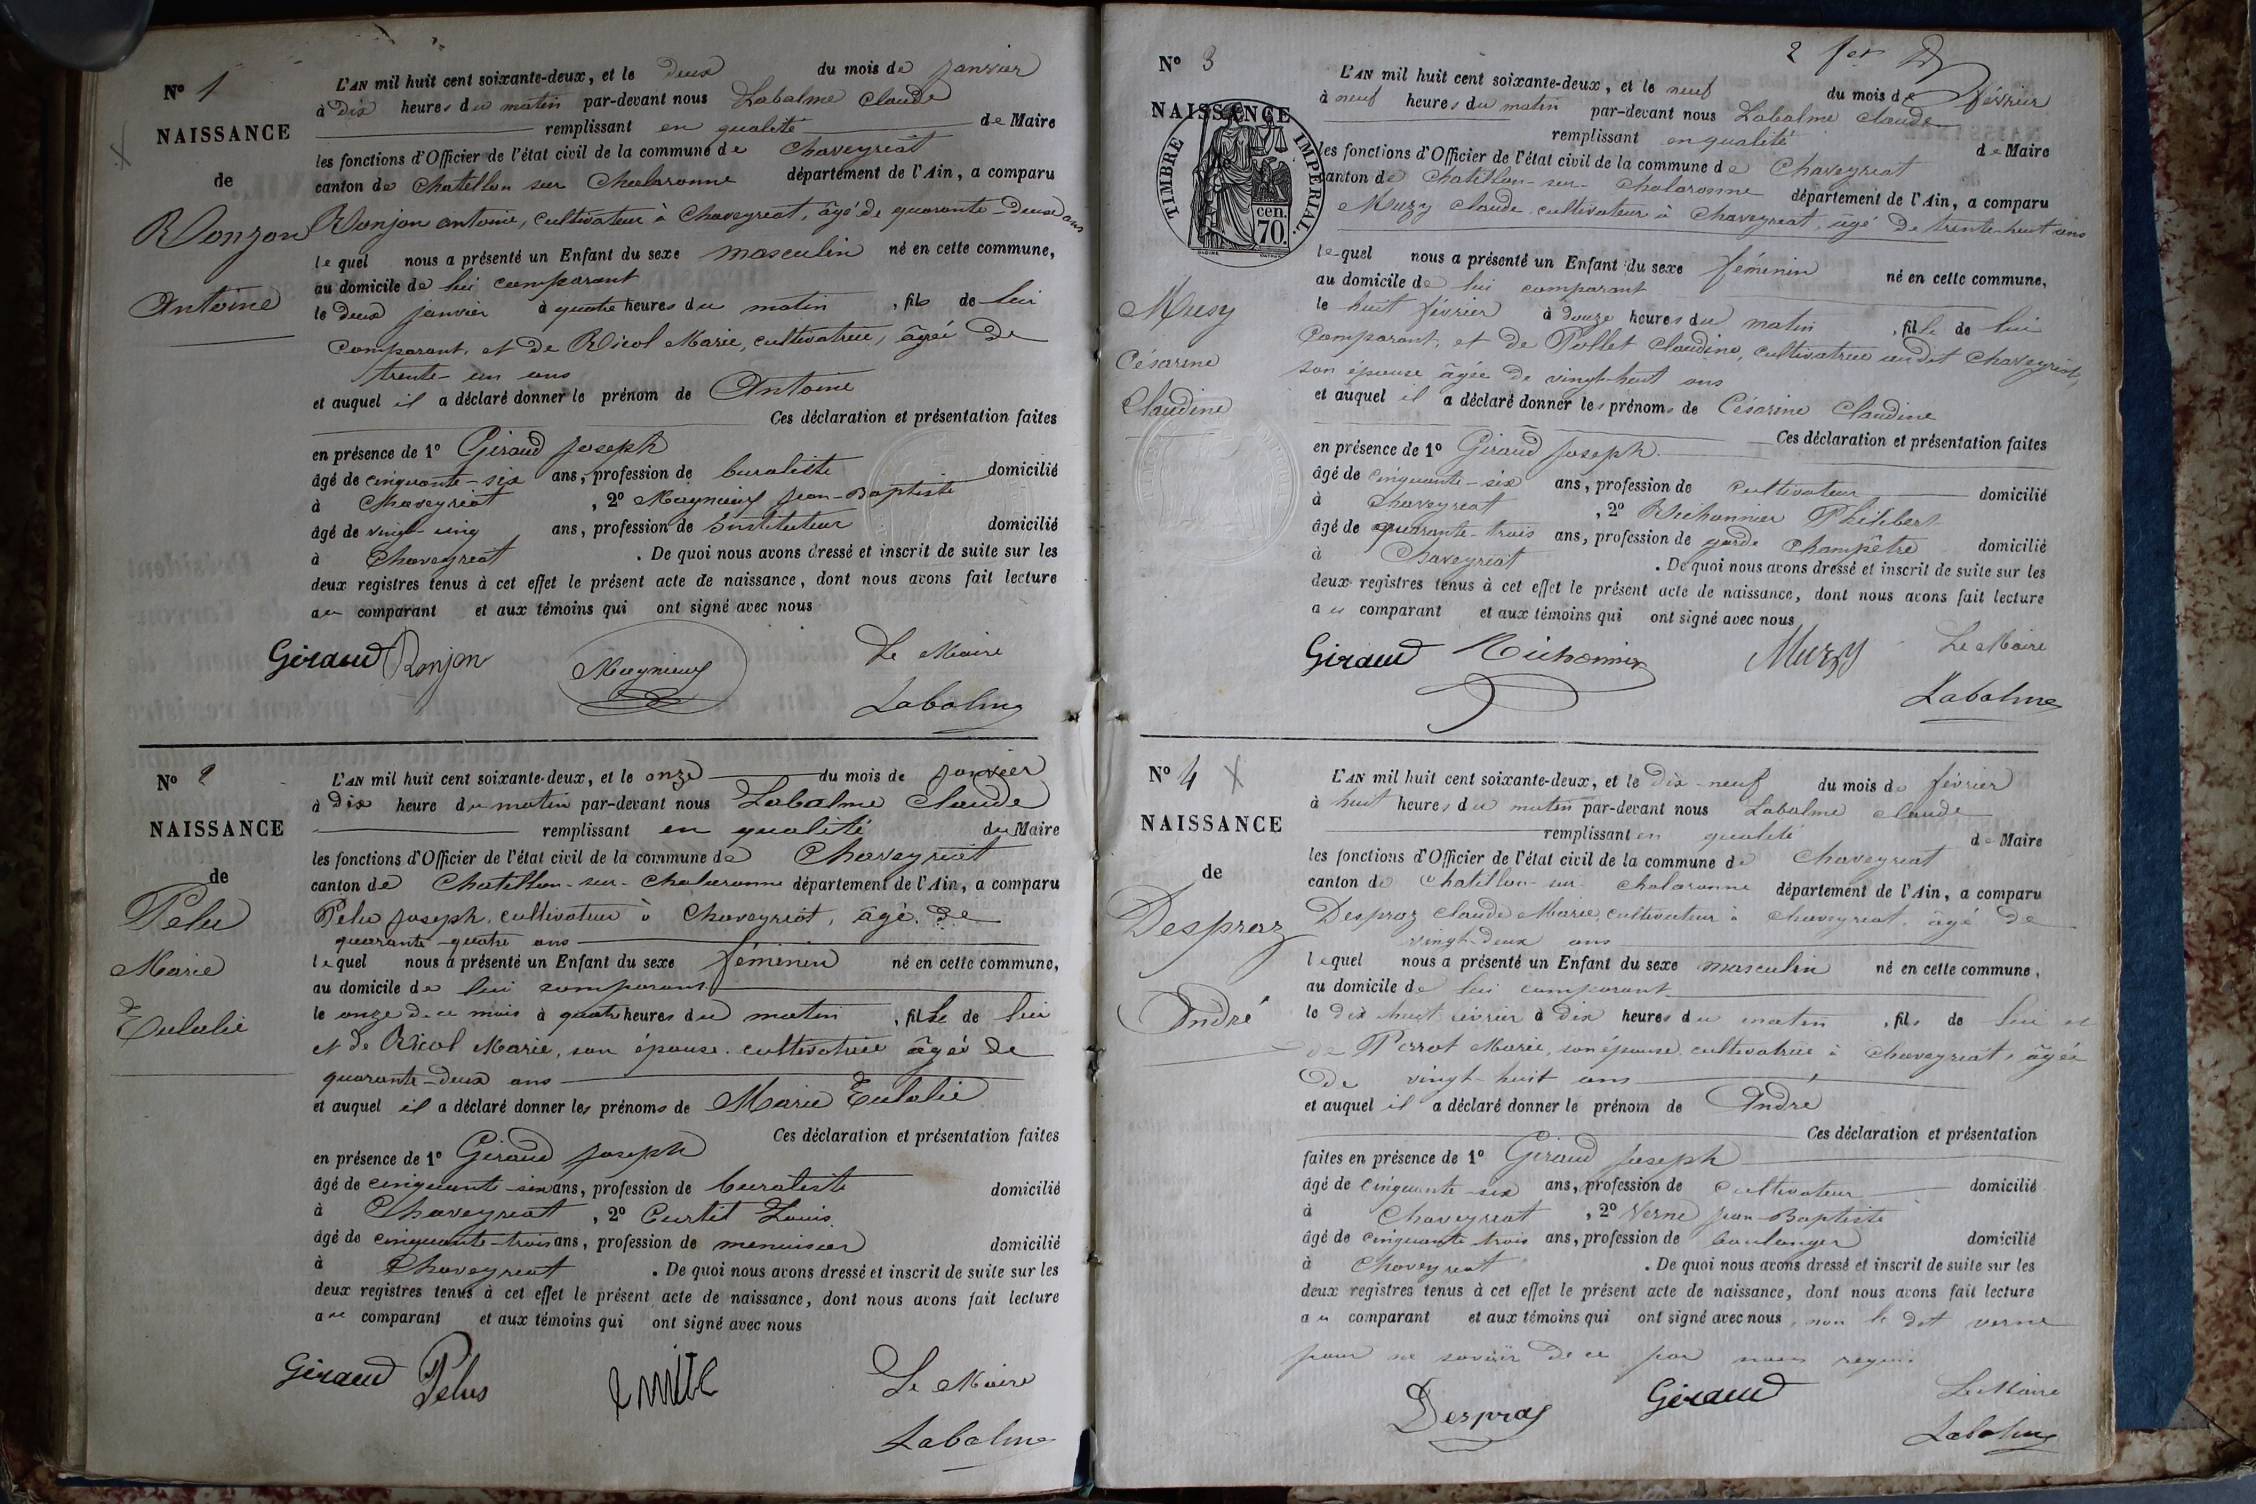 N° 1
NAISSANCE
de
Ronjon
Antoine
L'AN mil huit cent soixante-deux, et le deux du mois de janvier
à dix heures du matin par-devant nous Labalme Claude
remplissant en qualité de Maire
les fonctions d'Officier de l'état civil de la commune de Chaveyriat
canton de Chatillon sur Chalaronne département de l'Ain, a comparu
Ronjon antoine, cultivateur à Chaveyriat, âgé de quarante-deux ans
lequel nous a présenté un Enfant du sexe masculin né en cette commune,
au domicile de lui comparant
le deux janvier à quatre heures du matin, fils de lui
comparant, et de Ricol Marie, cultivatrice, âgée de
trente-un ans
et auquel il a déclaré donner le prénom de Antoine
Ces déclaration et présentation faites
en présence de 1° Giraud joseph
âgé de cinquante-six ans, profession de buraliste domicilié
à Chaveyriat, 2° Magnieux jean-Baptiste
âgé de vingt-cinq ans, profession de Instituteur domicilié
à Chaveyriat. De quoi nous avons dressé et inscrit de suite sur les
deux registres tenus à cet effet le présent acte de naissance, dont nous avons fait lecture
au comparant et aux témoins qui ont signé avec nous
Giraud Ronjon Magnieux Le Maire
Labalme
N° 2
NAISSANCE
de
Pelu
Marie
Eulalie
L'AN mil huit cent soixante-deux, et le onze du mois de janvier
à dix heure du matin par-devant nous Labalme Claude
remplissant en qualité du Maire
les fonctions d'Officier de l'état civil de la commune de Chaveyriat
canton de Chatillon-sur-Chalaronne département de l'Ain, a comparu
Pelu joseph, cultivateur à Chaveyriat, âgé de
quarante-quatre ans
lequel nous a présenté un Enfant du sexe féminin né en cette commune,
au domicile de lui comparant
le onze de ce mois à quatre heures du matin, fille de lui
et de Ricol Marie, son épouse, cultivatrice âgée de
quarante-deux ans
et auquel il a déclaré donner les prénoms de Marie Eulalie
Ces déclaration et présentation faites
en présence de 1° Giraud joseph
âgé de cinquante-six ans, profession de buraliste domicilié
à Chaveyriat, 2° Curtit Louis
âgé de cinquante-trois ans, profession de menuisier domicilié
à Chaveyriat. De quoi nous avons dressé et inscrit de suite sur les
deux registres tenus à cet effet le présent acte de naissance, dont nous avons fait lecture
au comparant et aux témoins qui ont signé avec nous
Giraud Pelus Le Maire
Labalme
2
N° 3
NAISSANCE
TIMBRE IMPERIAL.
cen.
70.
Muzy
Césarine
Claudine
L'AN mil huit cent soixante-deux, et le neuf du mois de février
à neuf heures du matin par-devant nous Labalme Claude
remplissant en qualité de Maire
les fonctions d'Officier de l'état civil de la commune de Chaveyriat
canton de Chatillon-sur-Chalaronne département de l'Ain, a comparu
Muzy Claude, cultivateur à Chaveyriat, âgé de trente-huit ans
lequel nous a présenté un Enfant du sexe féminin né en cette commune,
au domicile de lui comparant
le huit février à douze heures du matin, fille de lui
comparant, et de Pollet Claudine, cultivatrice audit Chaveyriat,
son épouse âgée de vingt-huit ans
et auquel il a déclaré donner les prénoms de Césarine Claudine
Ces déclaration et présentation faites
en présence de 1° Giraud joseph
âgé de cinquante-six ans, profession de cultivateur domicilié
à Chaveyriat, 2° Michonnier Philibert
âgé de quarante-trois ans, profession de garde champêtre domicilié
à Chaveyriat. De quoi nous avons dressé et inscrit de suite sur les
deux registres tenus à cet effet le présent acte de naissance, dont nous avons fait lecture
au comparant et aux témoins qui ont signé avec nous
Giraud Michonnier Muzy Le Maire
Labalme
N° 4
NAISSANCE
de
Despraz
André
L'AN mil huit cent soixante-deux, et le dix-neuf du mois de février
à huit heures du matin par-devant nous Labalme Claude
remplissant en qualité de Maire
les fonctions d'Officier de l'état civil de la commune de Chaveyriat
canton de Chatillon-sur-Chalaronne département de l'Ain, a comparu
Despraz Claude Marie, cultivateur à Chaveyriat, âgé de
vingt-deux ans
lequel nous a présenté un Enfant du sexe masculin né en cette commune,
au domicile de lui comparant
le dix huit février à dix heures du matin, fils de lui et
de Perrot Marie, son épouse, cultivatrice à Chaveyriat, âgée
de vingt-huit ans
et auquel il a déclaré donner le prénom de André
Ces déclaration et présentation
faites en présence de 1° Giraud joseph
âgé de cinquante-six ans, profession de cultivateur domicilié
à Chaveyriat, 2° Verne jean-Baptiste
âgé de cinquante trois ans, profession de boulanger domicilié
à Chaveyriat. De quoi nous avons dressé et inscrit de suite sur les
deux registres tenus à cet effet le présent acte de naissance, dont nous avons fait lecture
au comparant et aux témoins qui ont signé avec nous, non le dit verne
pour ne savoir de ce par nous requis
Despraz Giraud Le Maire
Labalme